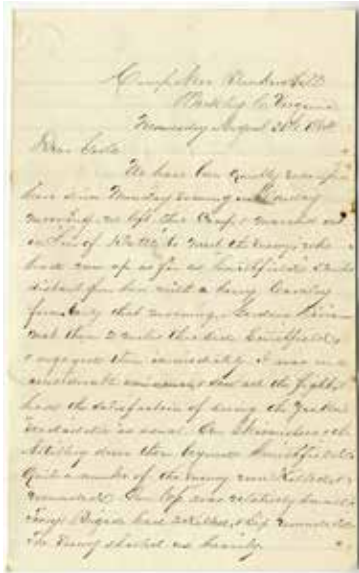 Camp Near Bunker Hill
Berkley Co Virginia
Wednesday August 31st 1864
Dear
We have been quietly
here since Monday evening Monday
morning we left this Camp & marched out
in Line of Battle to meet the enemy who
had come up as far as Smithfield 5 miles
distant from here with a heavy Cavalry
force Early that morning. Gordons Division
met them 2 miles this side Smithfield &
engaged them immediately it was
considerable saw all the fight &
had the satisfaction of seeing the Yankees
as usual. Our Skirmishers &
Artillery drove them beyond Smithfield
Quite a number of the enemy were killed &
wounded. Our loss was relatively small
Brigade had 2 killed, & wounded
The Enemy as heavily